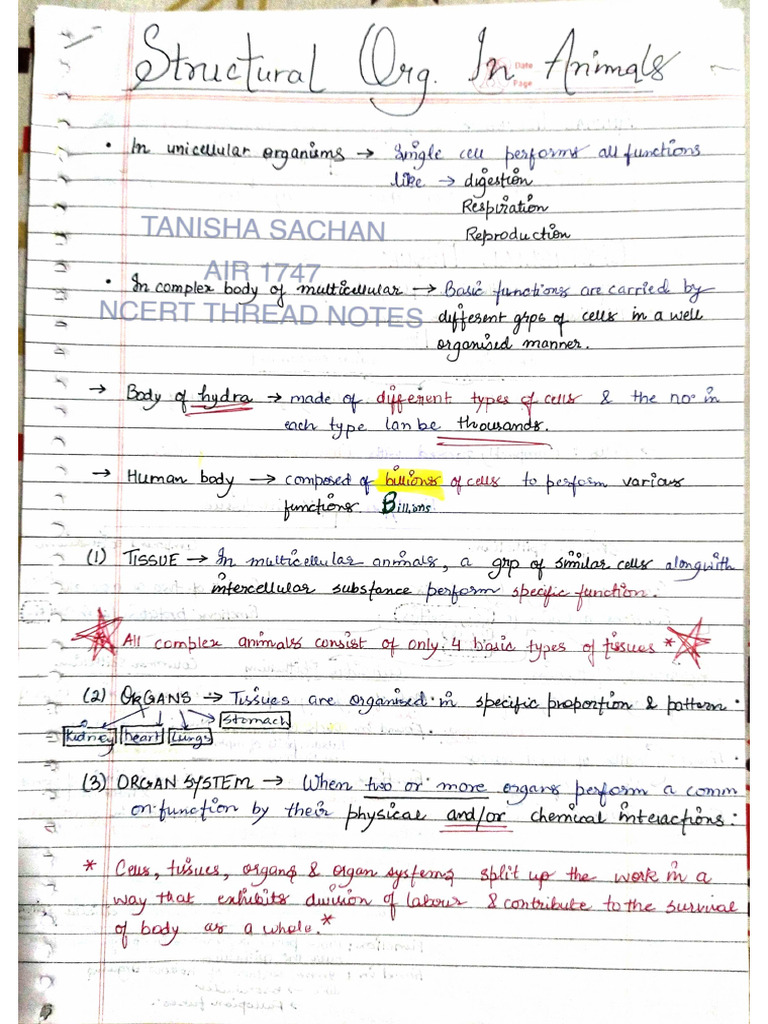 Structural Org. In Animals
Date
Page
• In unicellular organisms → Single cell performs all functions
like → digestion
Respiration
Reproduction
TANISHA SACHAN
AIR 1747
NCERT THREAD NOTES
• In complex body of multicellular → Basic functions are carried by
different grps of cells in a well
organised manner.
→ Body of hydra → made of different types of cells & the no. in
each type can be thousands.
→ Human body → composed of billions of cells to perform various
functions. Billions.
(1) TISSUE → In multicellular animals, a grp of similar cells alongwith
intercellular substance perform specific function.
* All complex animals consist of only 4 basic types of tissues *
(2) ORGANS → Tissues are organised in specific proportion & pattern.
Kidney heart lungs stomach
(3) ORGAN SYSTEM → When two or more organs perform a comm
on function by their physical and/or chemical interactions.
* Cells, tissues, organs & organ systems split up the work in a
way that exhibits division of labour & contribute to the survival
of body as a whole. *